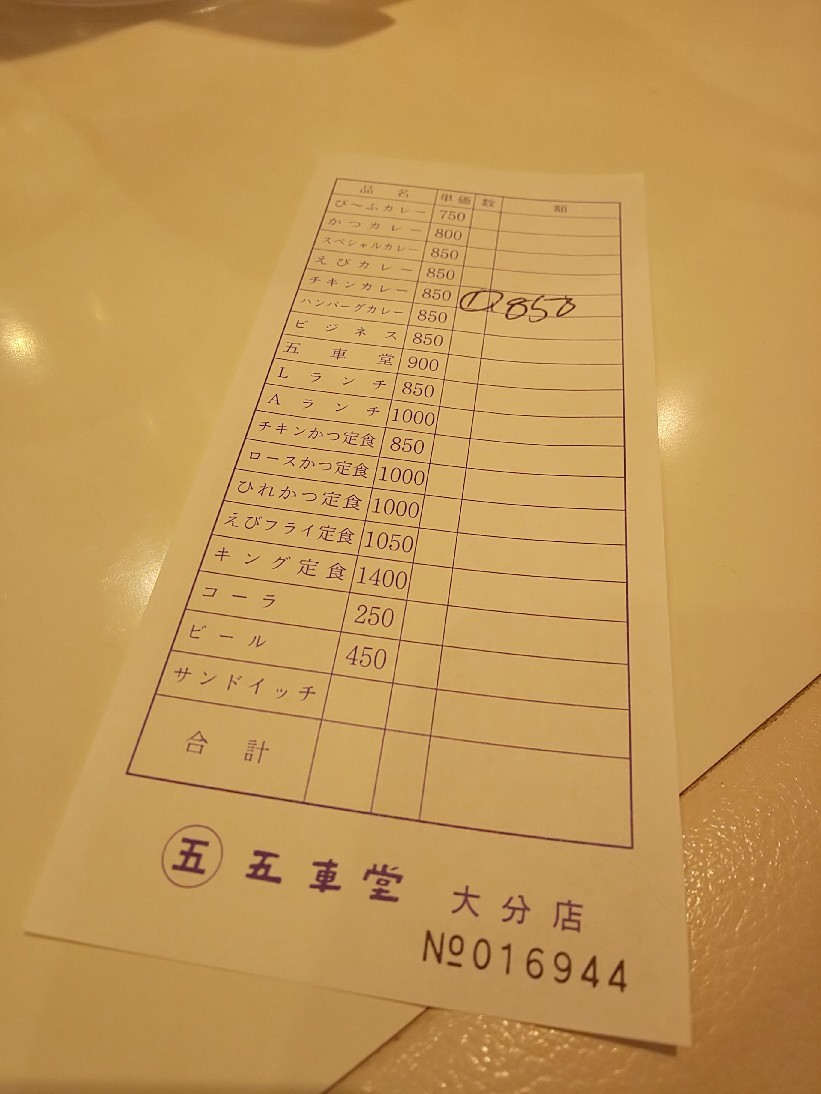 品名 単価 数 額
び〜ふカレー 750
かつカレー 800
スペシャルカレー 850
えびカレー 850
チキンカレー 850 ① 850
ハンバーグカレー 850
ビジネス 850
五車堂 900
Lランチ 850
Aランチ 1000
チキンかつ定食 850
ロースかつ定食 1000
ひれかつ定食 1000
えびフライ定食 1050
キング定食 1400
コーラ 250
ビール 450
サンドイッチ
合計
五 五車堂 大分店
№016944